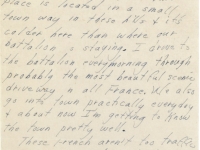 place is located in a small
town way in these & it's
colder here than where our
battalion is staging. I drive to
the battalion every morning through
probably the most beautiful scenic
driveway in all France. We also
go into town practically everyday
& about now I'm getting to know
the town pretty well.
These French aren't too